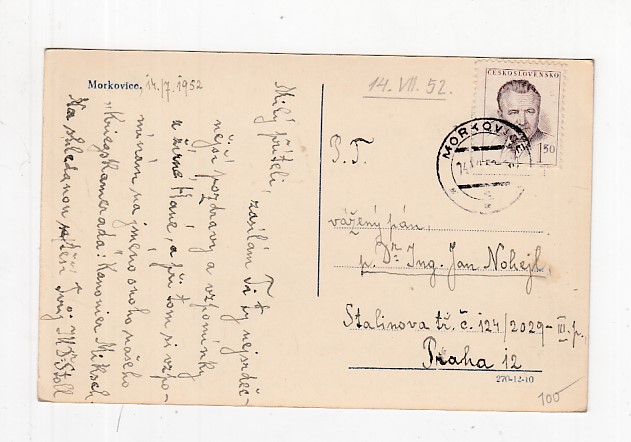 Morkovice, 14./7. 1952
Milý příteli, zasílám Ti ty nejsrdeč-
nější pozdravy a vzpomínky
z širné Hané, a při tom si vzpo-
mínám na jméno onoho našeho
"Kriegskamerada": Kanonier Miksch.
Na shledanou se těší Tvůj Dr. Stoll
14. VII. 52.
ČESKOSLOVENSKO
1,50
MORKOVICE
P. T.
vážený pán,
p. Dr. Ing. Jan Nohejl,
Stalinova tř. č. 124/2029-III. p.
Praha 12
270-12-10
100